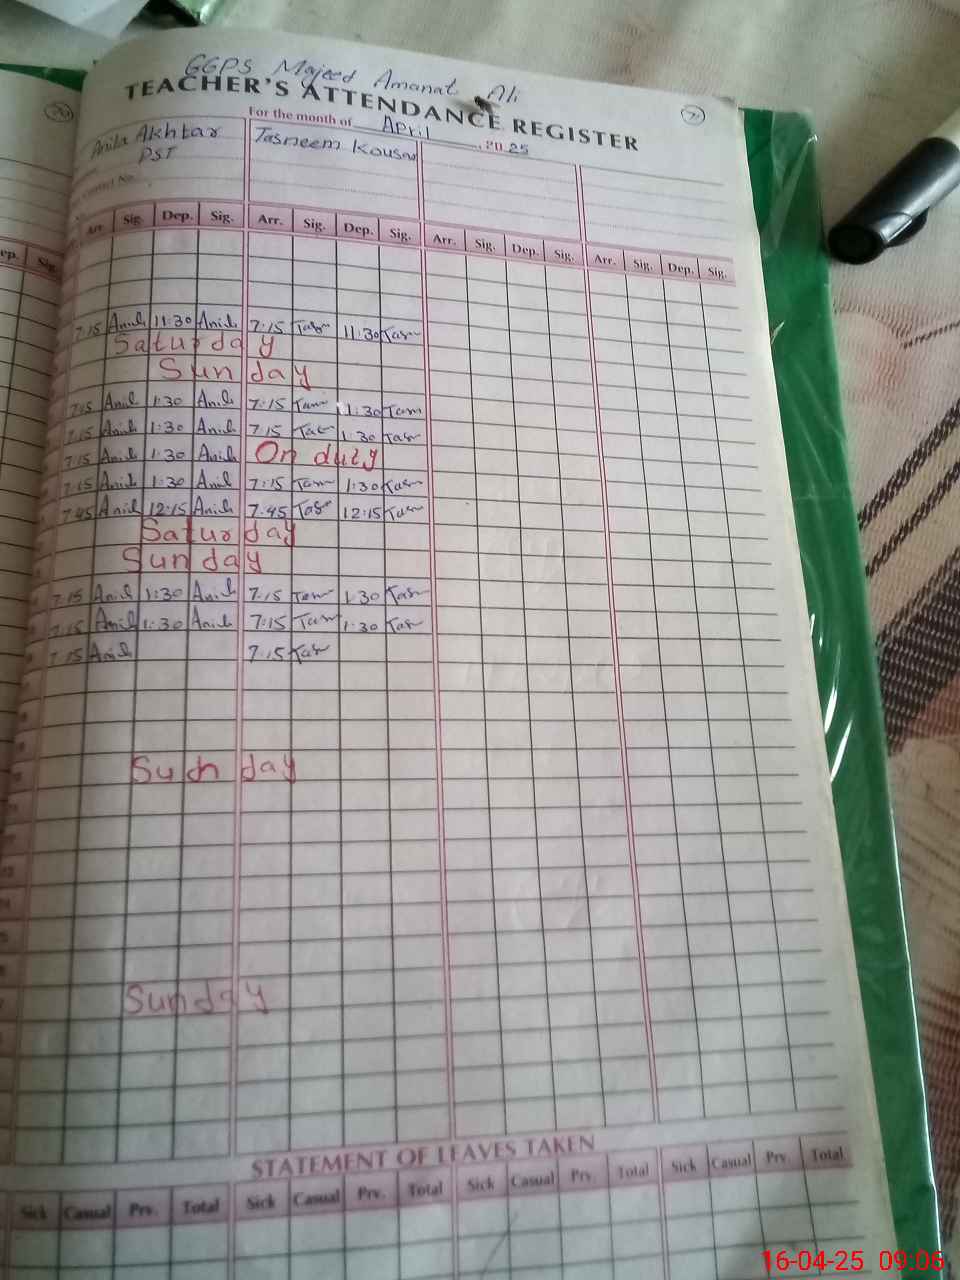 GGPS Majeed Amanat Ali
TEACHER'S ATTENDANCE REGISTER
For the month of April, 2025
Anila Akhtar Tasneem Kousar
PST
Contact No.
Arr. Sig. Dep. Sig. Arr. Sig. Dep. Sig. Arr. Sig. Dep. Sig. Arr. Sig. Dep. Sig.
7:15 Anila 11:30 Anila 7:15 Tas 11:30 Tas
Saturday
Sunday
7:15 Anila 1:30 Anila 7:15 Tas 1:30 Tas
7:15 Anila 1:30 Anila 7:15 Tas 1:30 Tas
7:15 Anila 1:30 Anila On duty
7:15 Anila 1:30 Anila 7:15 Tas 1:30 Tas
7:45 Anila 12:15 Anila 7:45 Tas 12:15 Tas
Saturday
Sunday
7:15 Anila 1:30 Anila 7:15 Tas 1:30 Tas
7:15 Anila 1:30 Anila 7:15 Tas 1:30 Tas
7:15 Anila 7:15 Tas
Sunday
Sunday
STATEMENT OF LEAVES TAKEN
Sick Casual Prv. Total Sick Casual Prv. Total Sick Casual Prv. Total Sick Casual Prv. Total
16-04-25 09:06